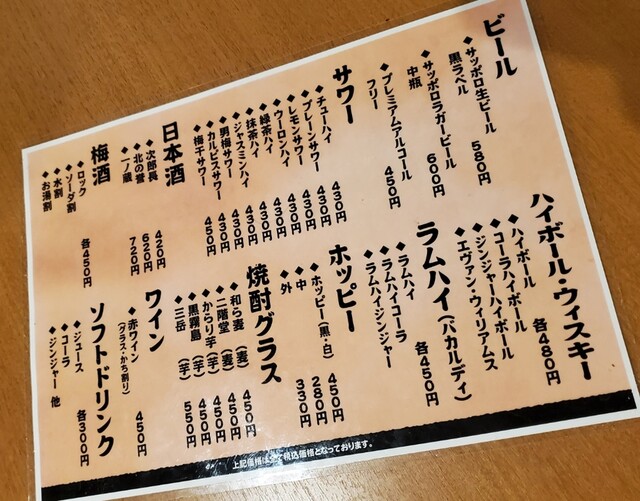 ビール
◆サッポロ生ビール
黒ラベル 580円
◆サッポロラガービール
中瓶 600円
◆プレミアムアルコール
フリー 450円
サワー
◆チューハイ 430円
◆プレーンサワー 430円
◆レモンサワー 430円
◆ウーロンハイ 430円
◆緑茶ハイ 430円
◆抹茶ハイ 430円
◆ジャスミンハイ 430円
◆男梅サワー 430円
◆カルピスサワー 430円
◆梅干サワー 450円
日本酒
◆次郎長 420円
◆北の誉 620円
◆一ノ蔵 720円
梅酒
◆ロック
◆ソーダ割
◆水割
◆お湯割
各450円
ハイボール・ウィスキー
◆ハイボール
◆コーラハイボール
◆ジンジャーハイボール
◆エヴァン・ウィリアムス
各480円
ラムハイ(バカルディ)
◆ラムハイ
◆ラムハイコーラ
◆ラムハイジンジャー
各450円
ホッピー
◆ホッピー(黒・白) 450円
◆中 280円
◆外 330円
焼酎グラス
◆和ら麦(麦) 450円
◆二階堂(麦) 450円
◆からり芋(芋) 450円
◆黒霧島(芋) 450円
◆三岳(芋) 550円
ワイン
◆赤ワイン
(グラス・かち割り) 450円
ソフトドリンク
◆ジュース
◆コーラ
◆ジンジャー 他
各300円
上記価格は全て税込価格となっております。